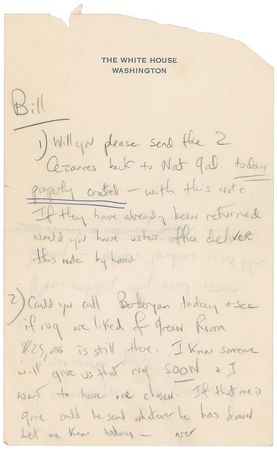 THE WHITE HOUSE
WASHINGTON
Bill
1) Will you please send the 2
Cezannes back to Nat Gal. today
properly crated - with this note.
If they have already been returned
would you have ushers office deliver
this note by hand.
2) Could you call Berberyan today + see
if rug we liked for Green Room
$25,000 is still there. I know someone
will give us that rug SOON + I
want to have one chosen. If that one is
gone could he send whatever he has found
Let me know today - over